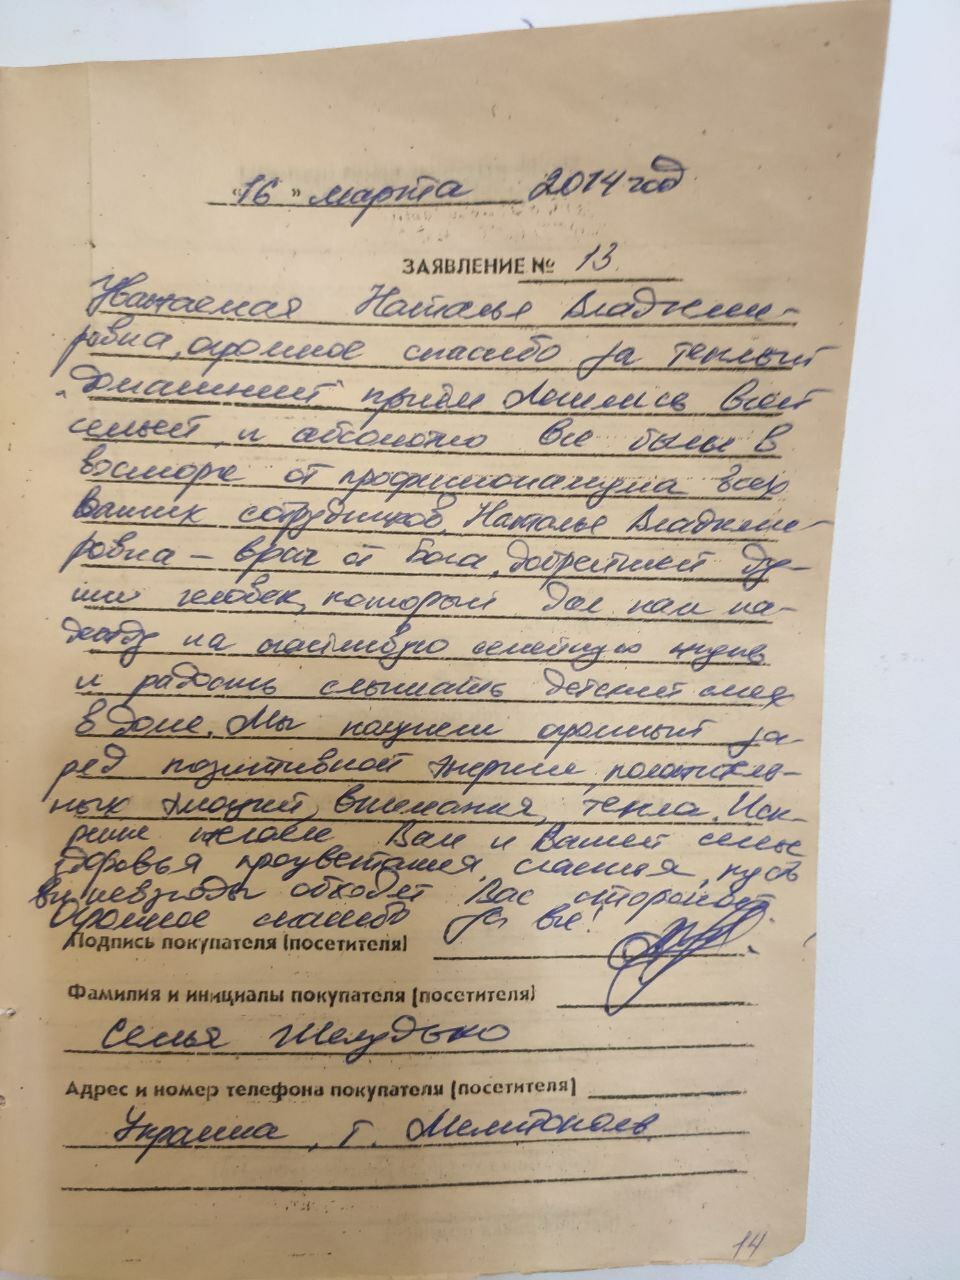 «16» марта 2014 год
ЗАЯВЛЕНИЕ № 13
Уважаемая Наталья Владими-
ровна, огромное спасибо за теплый
"домашний" приём. Лечились всей
семьей, и абсолютно все были в
восторге от профессионализма всех
ваших сотрудников. Наталья Влади-
ровна – врач от Бога, добрейшей ду-
ши человек, который дал нам на-
дежду на счастливую семейную жизнь
и радость слышать детский смех
в доме. Мы получили огромный за-
ряд позитивной энергии, положитель-
ных эмоций, внимания, тепла. Иск-
ренне желаем Вам и Вашей семье
здоровья, процветания, счастья, пусть
все невзгоды обходят Вас стороной.
Огромное спасибо за все!
Подпись покупателя (посетителя)
Фамилия и инициалы покупателя (посетителя)
Семья
Адрес и номер телефона покупателя (посетителя)
Украина, г. Мелитополь
14